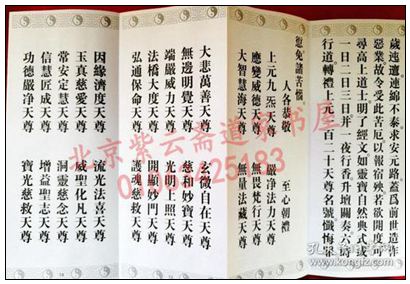 歲迍邅綿綿不泰求安之路蓋為前世造作
惡業故令受此苦厄以報宿殃若欲開度可
尋高上道士明了經文如靈寶自然典式或
一日二日三日并一夜行香升壇關奏六時
行道轉禮上元一百二十天尊名號懺悔罪
愆免諸苦惱
人各恭敬 至心朝禮
上元九炁天尊 嚴淨法力天尊
應變威德天尊 無畏梵行天尊
大智慧海天尊 無量法藏天尊
大悲萬善天尊 玄微自在天尊
無邊明覺天尊 慈和妙寶天尊
端嚴威力天尊 光明上照天尊
法橋大度天尊 開顯妙門天尊
弘通保命天尊 護魂慈救天尊
因緣濟度天尊 流光法喜天尊
玉真慈愛天尊 威聖化凡天尊
常安定慧天尊 洞靈慈念天尊
信慧匠成天尊 增益聖志天尊
功德嚴淨天尊 寶光慈救天尊
北京紫云斋道家书屋